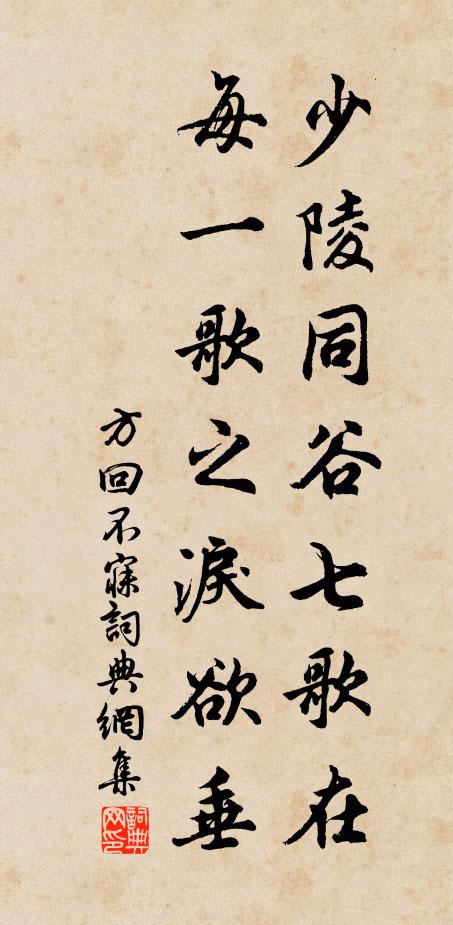 少陵同谷七歌在
每一歌之淚欲垂
方回不寐詞典網集
詞典網印